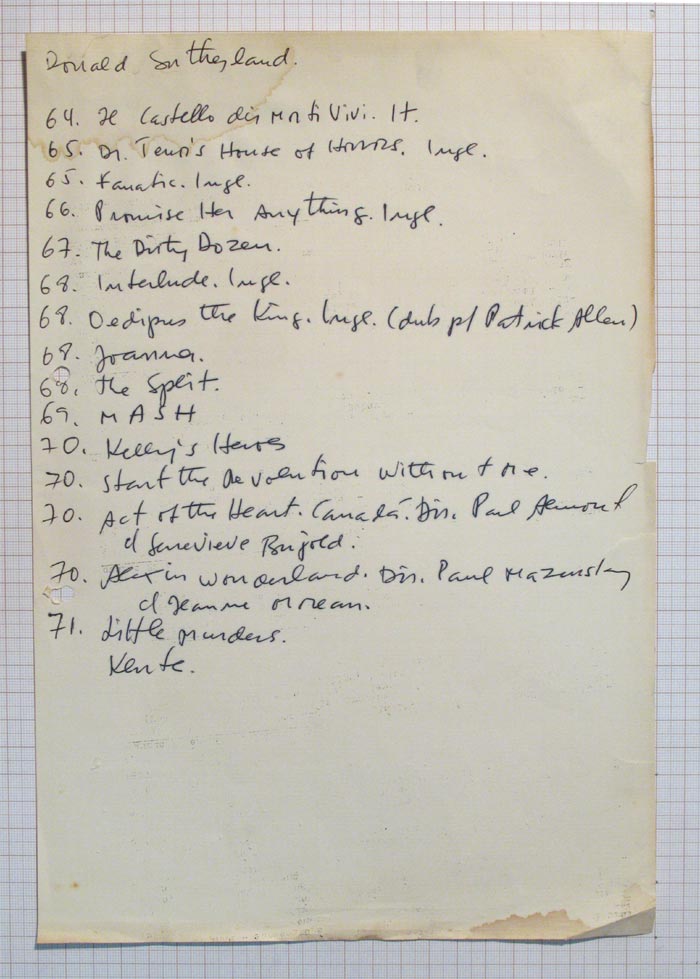 Donald Sutheyland.
64. Il Castello dei Morti Vivi. It.
65. Dr. Terror's House of Horrors. Ingl.
65. Fanatic. Ingl.
66. Promise Her Anything. Ingl.
67. The Dirty Dozen.
68. Interlude. Ingl.
68. Oedipus the King. Ingl. (dub p/ Patrick Allen)
68. Joanna.
68. the Split.
69. MASH
70. Kelly's Heroes
70. Start the Revolution without me.
70. Act of the Heart. Canadá. Dir. Paul Almond
c/ Genevieve Bujold.
70. Alex in wonderland. Dir. Paul Mazursky
c/ Jeanne Moreau.
71. Little Murders.
Klute.